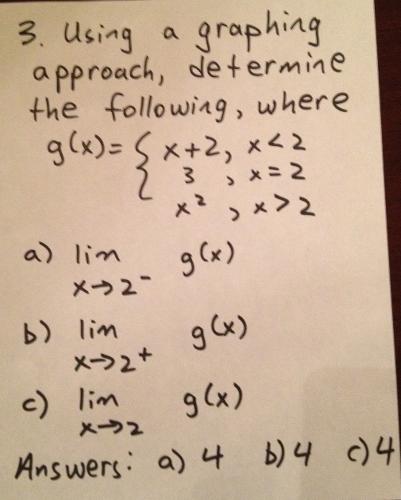 3. Using a graphing
approach, determine
the following, where
g(x)= { x+2, x<2
3 , x=2
x² , x>2
a) lim g(x)
x→2⁻
b) lim g(x)
x→2⁺
c) lim g(x)
x→2
Answers: a) 4 b) 4 c) 4